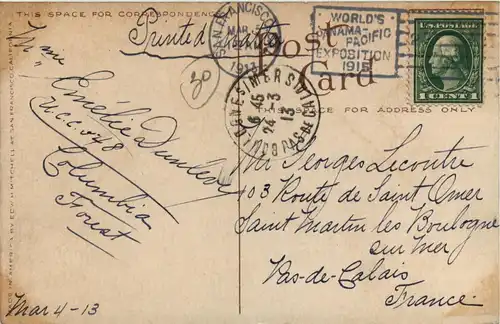 THIS SPACE FOR CORRESPONDENCE
Printed Matter
Post
Card
THIS SPACE FOR ADDRESS ONLY
SAN FRANCISCO
MAR
1913
WORLD'S
PANAMA-PACIFIC
EXPOSITION
1915
U.S. POSTAGE
1 CENT 1
30
16 45
24-3
13
PAS-DE-CALAIS
Emélie Dunleavy
U.C.C. 548
Columbia
Forest
Mar 4-13
Mr Georges Lecoutre
103 Route de Saint Omer
Saint Martin les Boulogne
sur Mer
Pas-de-Calais
France.
MADE IN AMERICA BY EDW. H. MITCHELL AT SAN FRANCISCO, CALIFORNIA